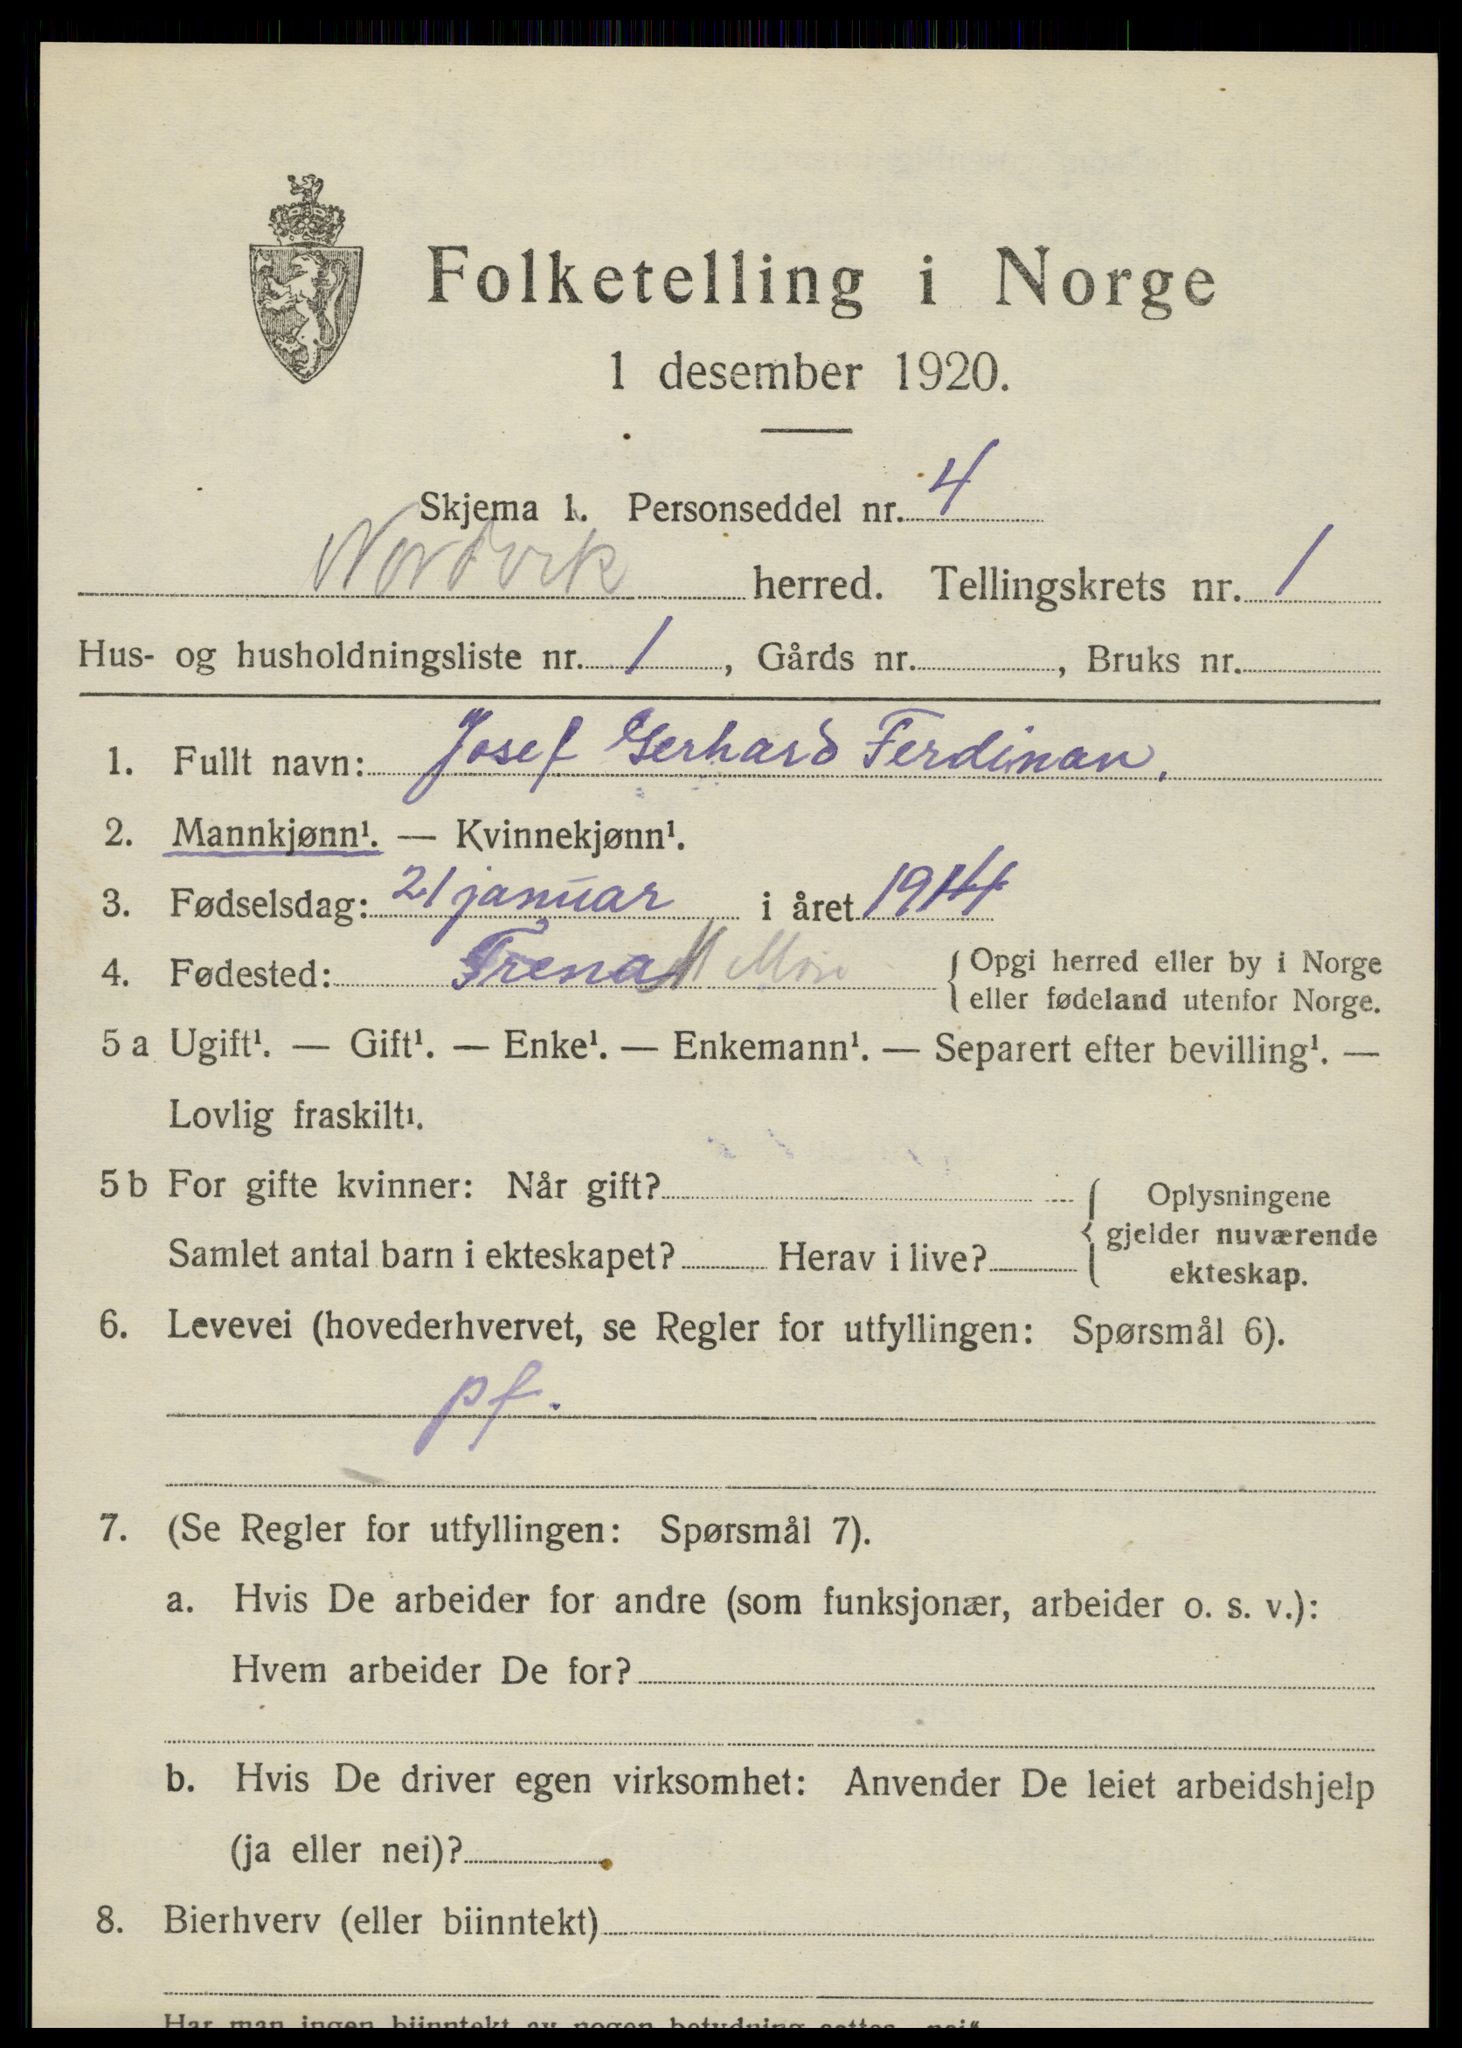 Folketelling i Norge
1 desember 1920.
Skjema 1. Personseddel nr. 4
Nordvik herred. Tellingskrets nr. 1
Hus- og husholdningsliste nr. 1, Gårds nr. , Bruks nr.
1. Fullt navn: Josef Gerhard Ferdinan.
2. Mannkjønn¹. — Kvinnekjønn¹.
3. Fødselsdag: 21 januar i året 1914
4. Fødested: Trena { Opgi herred eller by i Norge
eller fødeland utenfor Norge.
5 a Ugift¹. — Gift¹. — Enke¹. — Enkemann¹. — Separert efter bevilling¹. —
Lovlig fraskilt¹.
5 b For gifte kvinner: Når gift? { Oplysningene
gjelder nuværende
Samlet antal barn i ekteskapet? Herav i live? ekteskap.
6. Levevei (hovederhvervet, se Regler for utfyllingen: Spørsmål 6).
pf.
7. (Se Regler for utfyllingen: Spørsmål 7).
a. Hvis De arbeider for andre (som funksjonær, arbeider o. s. v.):
Hvem arbeider De for?
b. Hvis De driver egen virksomhet: Anvender De leiet arbeidshjelp
(ja eller nei)?
8. Bierhverv (eller biinntekt)
Har man ingen biinntekt av nogen betydning settes „nei“